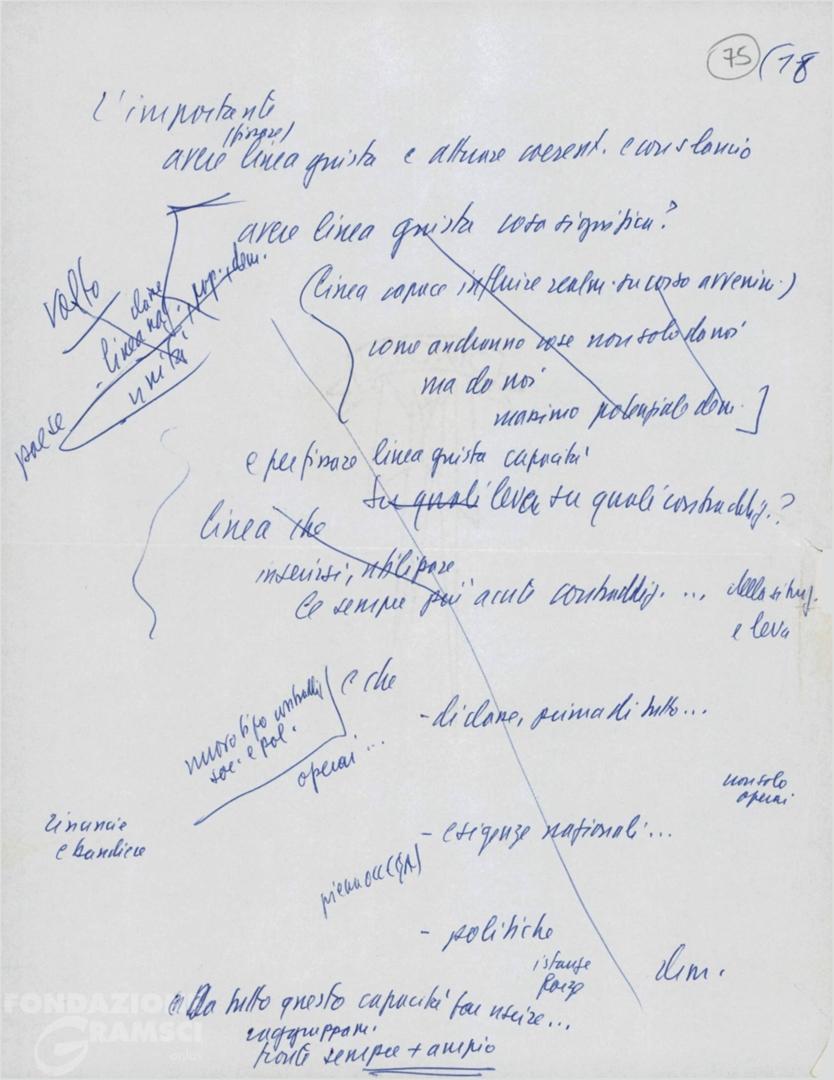 75 (18
L'importante
(fissare)
avere linea giusta e attuare coerent. e con slancio
avere linea giusta cosa significa?
(linea capace influire realm. su corso avvenim.)
come andranno cose non solo da noi
ma da noi
massimo potenziale dem.]
volto
- linea naz. pop. + dem.
classe
unità
paese
e per fissare linea giusta capacità
su quali leve, su quali contraddiz.?
linea che
inserirsi, utilizzare
le sempre più acute contraddiz. ... della situaz.
e leva
e che
nuovo tipo contraddiz
soc. e pol.
- di classe, prima di tutto...
operai...
non solo
operai
rinuncie
e bandiere
- esigenze nazionali...
- politiche
istanze
forze
dem.
Da tutto questo capacità far uscire...
raggruppam.
fronte sempre + ampio
FONDAZIONE
GRAMSCI
onlus